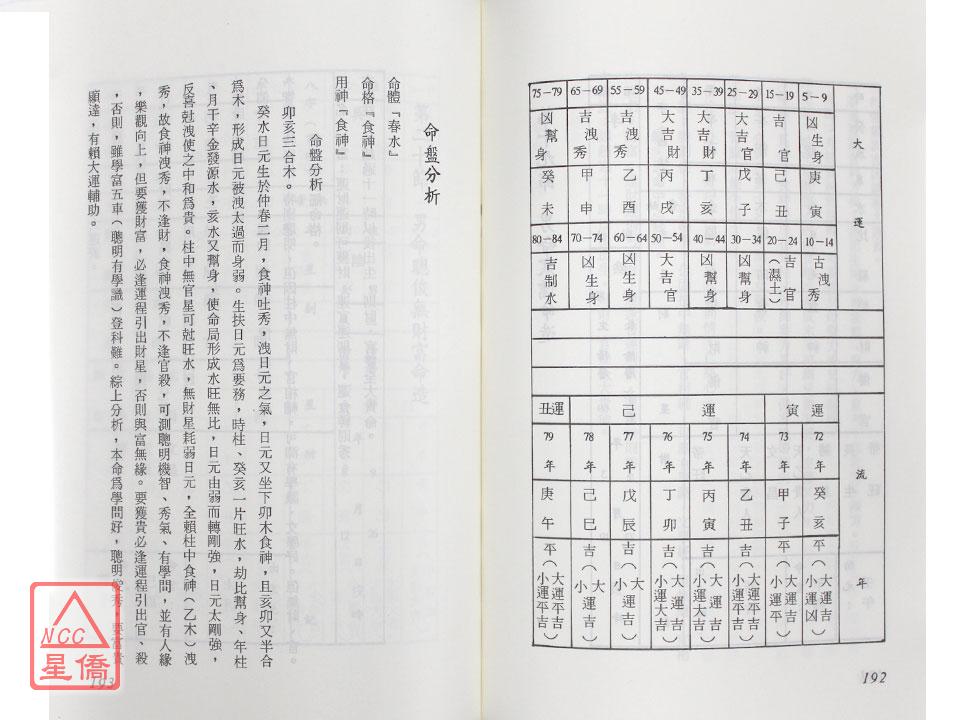 大運
5－9 凶生身 庚寅
15－19 吉官 己丑
25－29 大吉官 戊子
35－39 大吉財 丁亥
45－49 大吉財 丙戌
55－59 吉洩秀 乙酉
65－69 吉洩秀 甲申
75－79 凶幫身 癸未
10－14 古洩秀
20－24 吉官（濕土）
30－34 凶幫身
40－44 凶幫身
50－54 大吉官
60－64 凶生身
70－74 凶生身
80－84 吉制水
流年
寅運
己運
丑運
72年 癸亥 平（大運吉小運凶）
73年 甲子 平（大運吉小運平）
74年 乙丑 吉（大運平吉小運大吉）
75年 丙寅 吉（大運吉小運大吉）
76年 丁卯 吉（大運吉小運大吉）
77年 戊辰 吉（大運吉小運吉）
78年 己巳 吉（大運吉小運吉）
79年 庚午 平（大運平吉小運平吉）
192
命盤分析
命體『春水』
命格『食神』
用神『食神』
命盤分析
卯亥三合木。
癸水日元生於仲春二月，食神吐秀，洩日元之氣，日元又坐下卯木食神，且亥卯又半合
為木，形成日元被洩太過而身弱。生扶日元為要務，時柱、癸亥一片旺水，劫比幫身、年柱
、月干辛金發源水，亥水又幫身，使命局形成水旺無比，日元由弱而轉剛強，日元太剛強，
反喜尅洩使之中和為貴。柱中無官星可尅旺水，無財星耗弱日元，全賴柱中食神（乙木）洩
秀，故食神洩秀，不逢財，食神洩秀，不逢官殺，可測聰明機智、秀氣、有學問，並有人緣
，樂觀向上，但要獲財富，必逢運程引出財星，否則與富無緣。要獲貴必逢運程引出官、殺
，否則，雖學富五車（聰明有學識）登科難。綜上分析，本命為學問好，聰明俊秀，要富貴
顯達，有賴大運輔助。
193
NCC
星僑